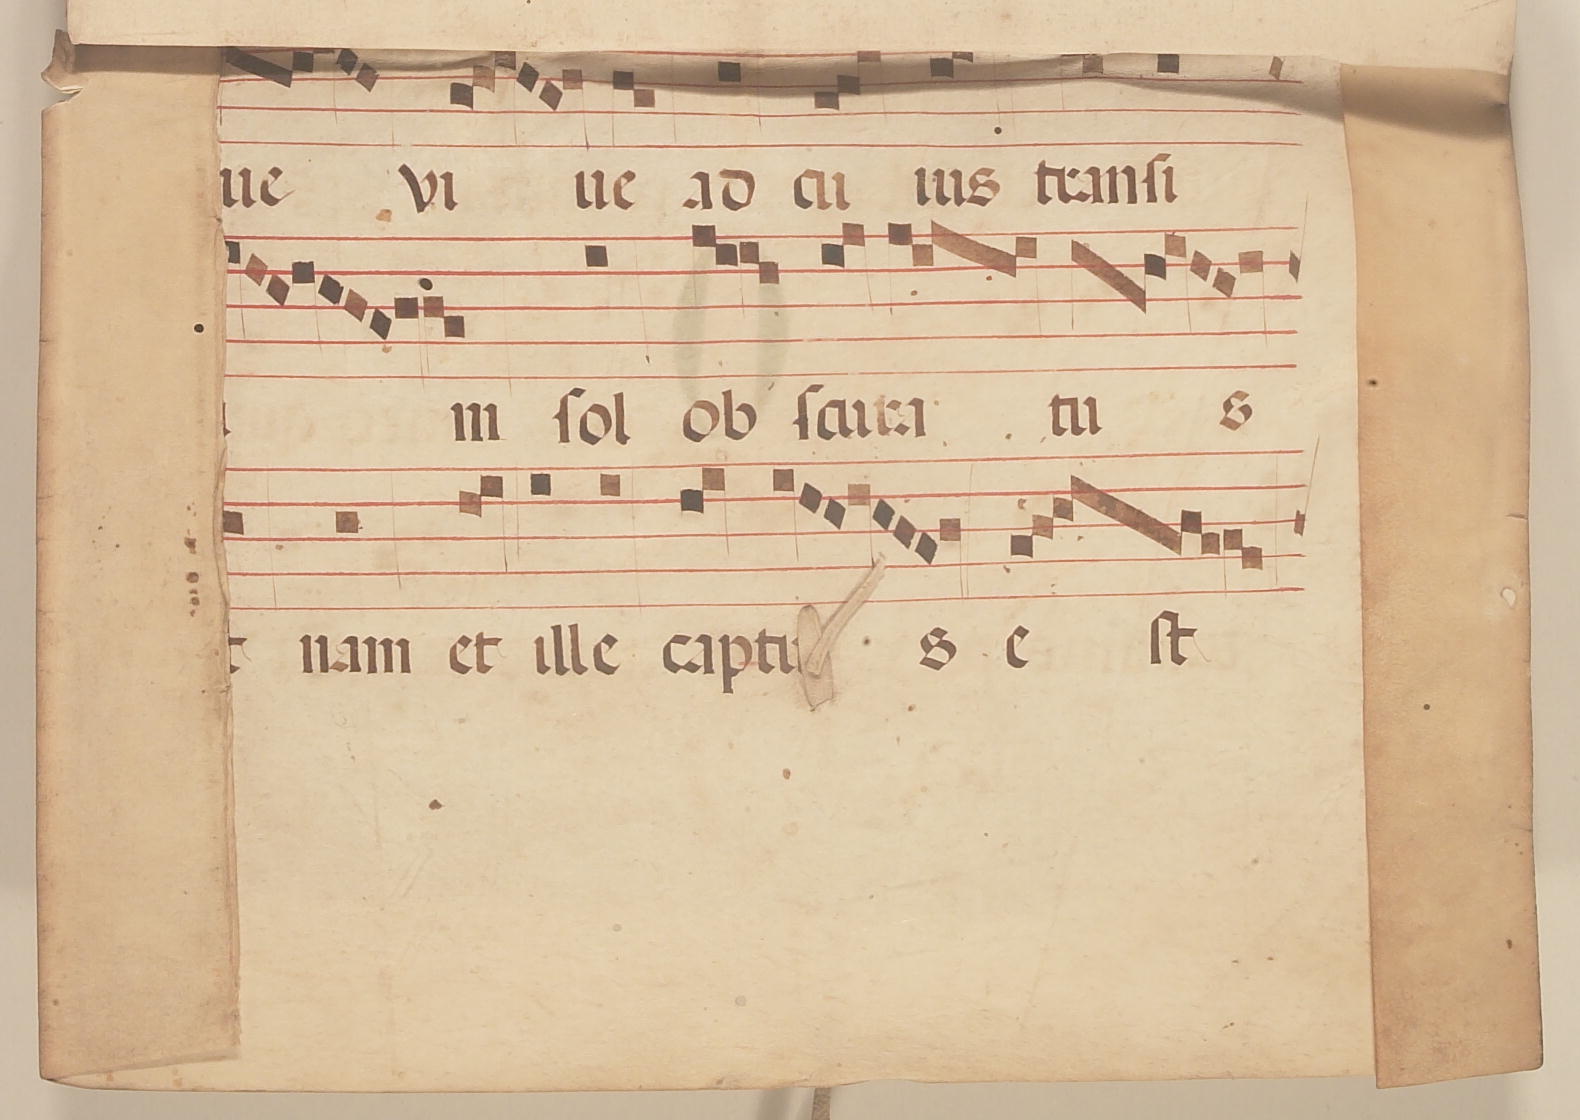 ue vi ue ad cu ius transi
m sol ob scura tu s
t nam et ille captu s e st